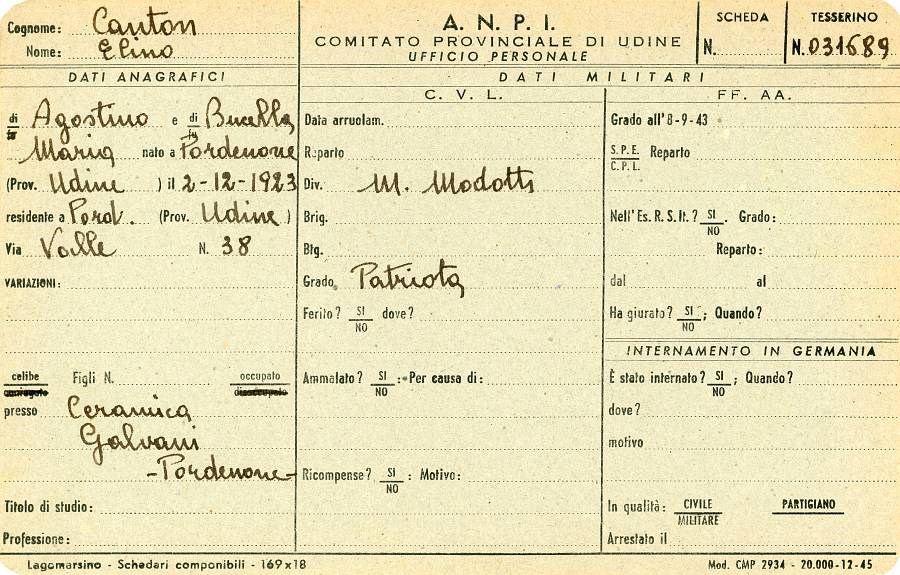 Cognome: Canton
Nome: Elino
A. N. P. I.
COMITATO PROVINCIALE DI UDINE
UFFICIO PERSONALE
SCHEDA
N.
TESSERINO
N. 031689
DATI ANAGRAFICI
di fu Agostino e di fu Bucella
Maria nato a Pordenone
(Prov. Udine ) il 2-12-1923
residente a Pord. (Prov. Udine )
Via Valle N. 38
VARIAZIONI:
celibe Figli N. occupato
coniugato disoccupato
presso Ceramica
Galvani
- Pordenone -
Titolo di studio:
Professione:
DATI MILITARI
C. V. L.
Data arruolam.
Reparto
Div. M. Modotti
Brig.
Btg.
Grado Patriota
Ferito? SI NO dove?
Ammalato? SI NO : Per causa di:
Ricompense? SI NO : Motivo:
FF. AA.
Grado all'8-9-43
S.P.E. C.P.L. Reparto
Nell'Es. R. S. It.? SI NO . Grado:
Reparto:
dal al
Ha giurato? SI NO ; Quando?
INTERNAMENTO IN GERMANIA
È stato internato? SI NO ; Quando?
dove?
motivo
In qualità: CIVILE MILITARE PARTIGIANO
Arrestato il
Lagomarsino - Schedari componibili - 169x18
Mod. CMP 2934 - 20.000-12-45